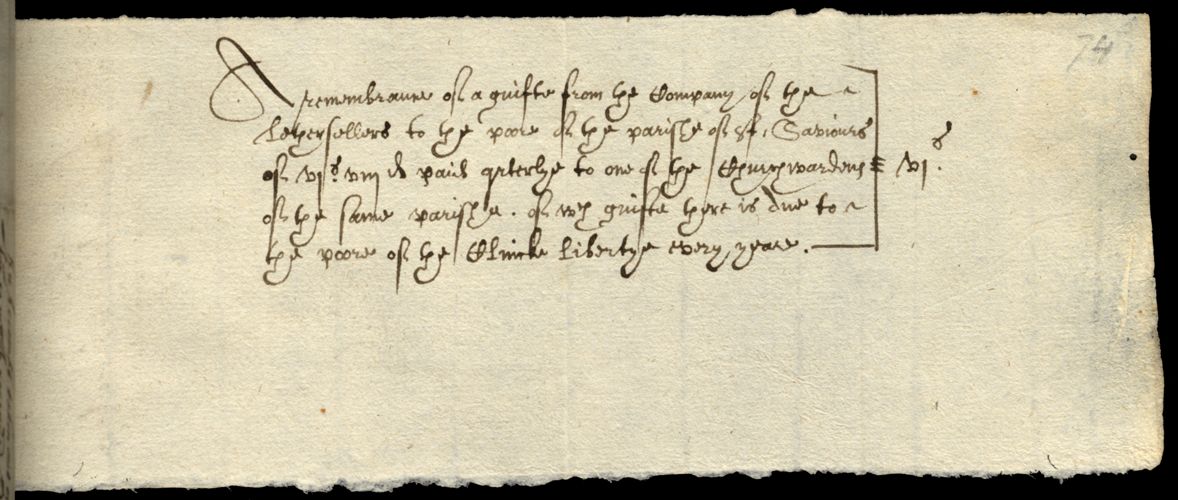 74
A remembraunc of a guifte from the Company of the
Lethersellers to the poore of the parishe of St. Saviours
of vjs viij d paid qrterlye to one of the Churchwardens vjs.
of the same parishe. of wch guifte there is due to
the poore of the Clincke libertye every yeare.